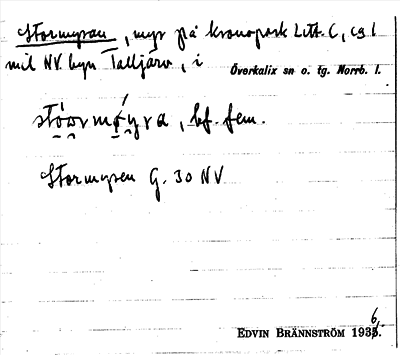 Stormyran, myr på kronopark Litt. C, ca 1
mil NV. byn Talljärv, i Överkalix sn o. tg. Norrb. l.
stóo̯rmǿyra, bf. fem.
Stormyren G. 30 NV
EDVIN BRÄNNSTRÖM 1936.